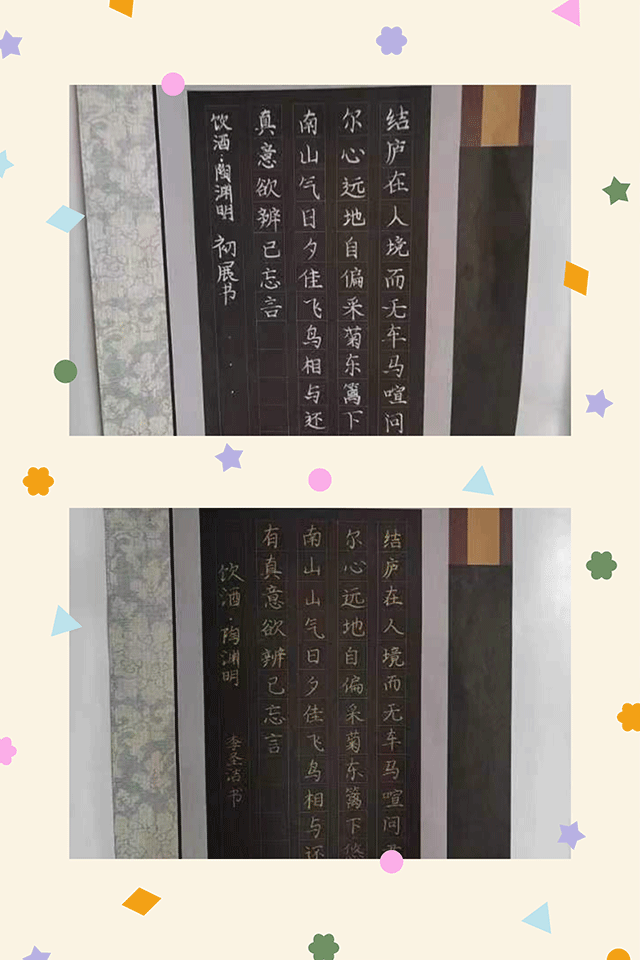 结庐在人境而无车马喧问
尔心远地自偏采菊东篱下
南山气日夕佳飞鸟相与还
真意欲辨已忘言
饮酒·陶渊明 初展书
结庐在人境而无车马喧问
尔心远地自偏采菊东篱下悠
南山山气日夕佳飞鸟相与还
有真意欲辨已忘言
饮酒·陶渊明 李圣洁书